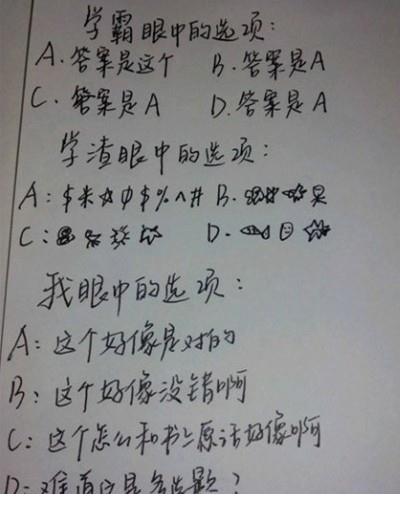 学霸眼中的选项:
A.答案是这个 B.答案是A
C.答案是A D.答案是A
学渣眼中的选项:
A:$米☆Φ$%^# B.
C: D.
我眼中的选项:
A:这个好像是对的
B:这个好像没错啊
C:这个怎么和书上原话好像啊
D:难道这是多选题?